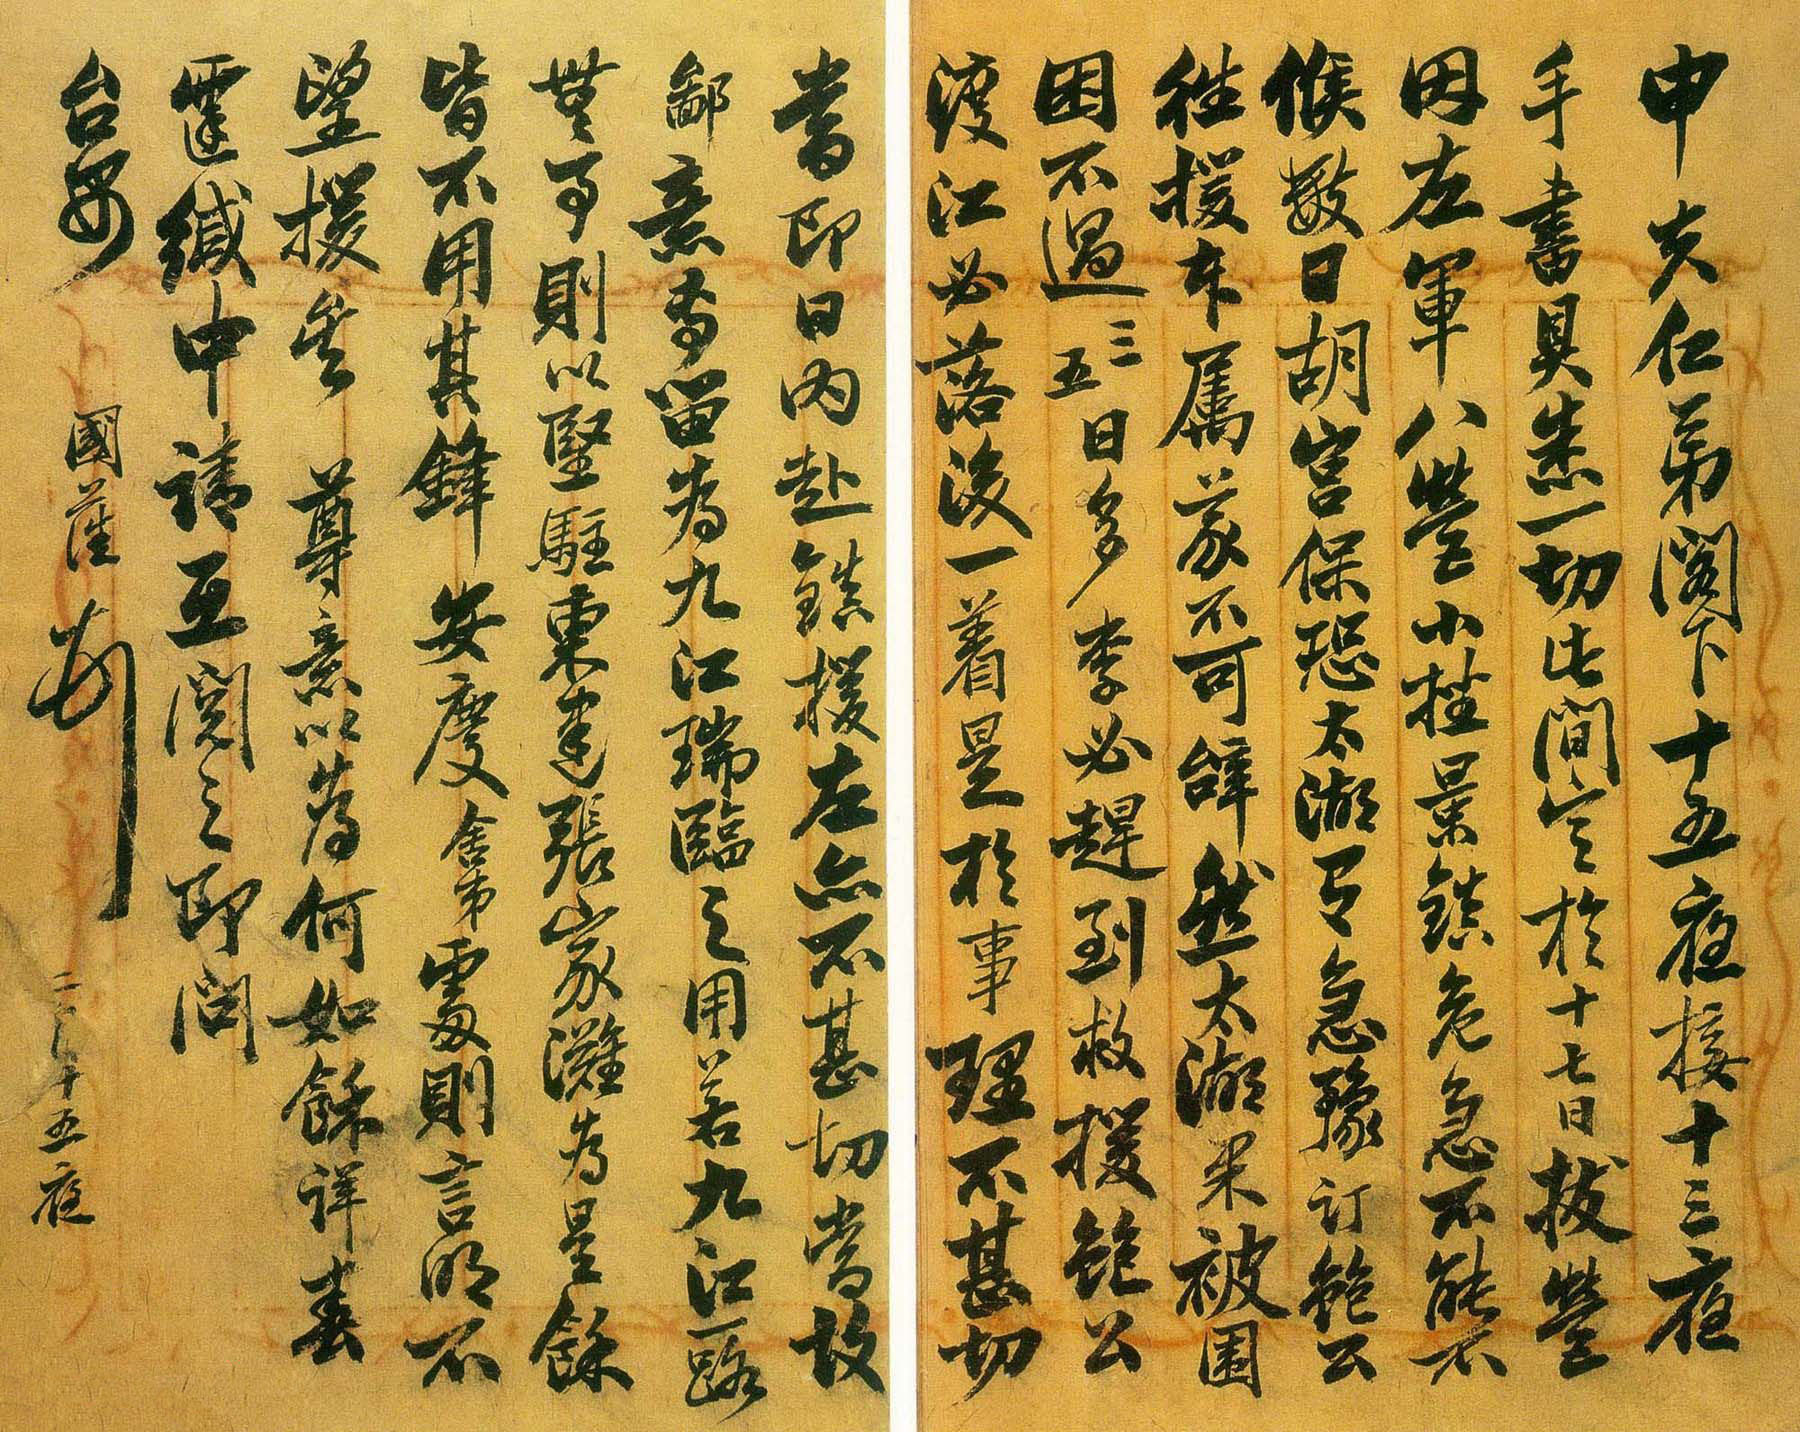 申夫仁弟閣下十五夜接十三夜
手書具悉一切此間定於十七日拔營
因左軍八營小挫景鎮危急不能不
候數日胡宮保恐太湖有急豫訂鮑公
往援本屬義不可辭然太湖未被圍
困不過三五日多李必趕到救援鮑公
渡江必落後一着是於事理不甚切
當即日內赴鎮援左亦不甚切當故
鄙意專留為九江瑞臨之用若九江一路
無事則以堅駐東建張家灘為是餘
皆不用其鋒安慶舍弟處則言明不
望援矣 尊意以為何如餘詳春
霆緘中請互閱之即問
台安
國藩頓 二月十五夜